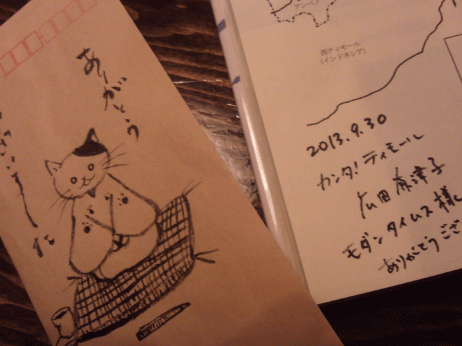 ありがとう
西ティモール
(インドネシア)
2013.9.30
カンタ!ティモール
広田奈津子
モダンタイムス様
ありがとうござ